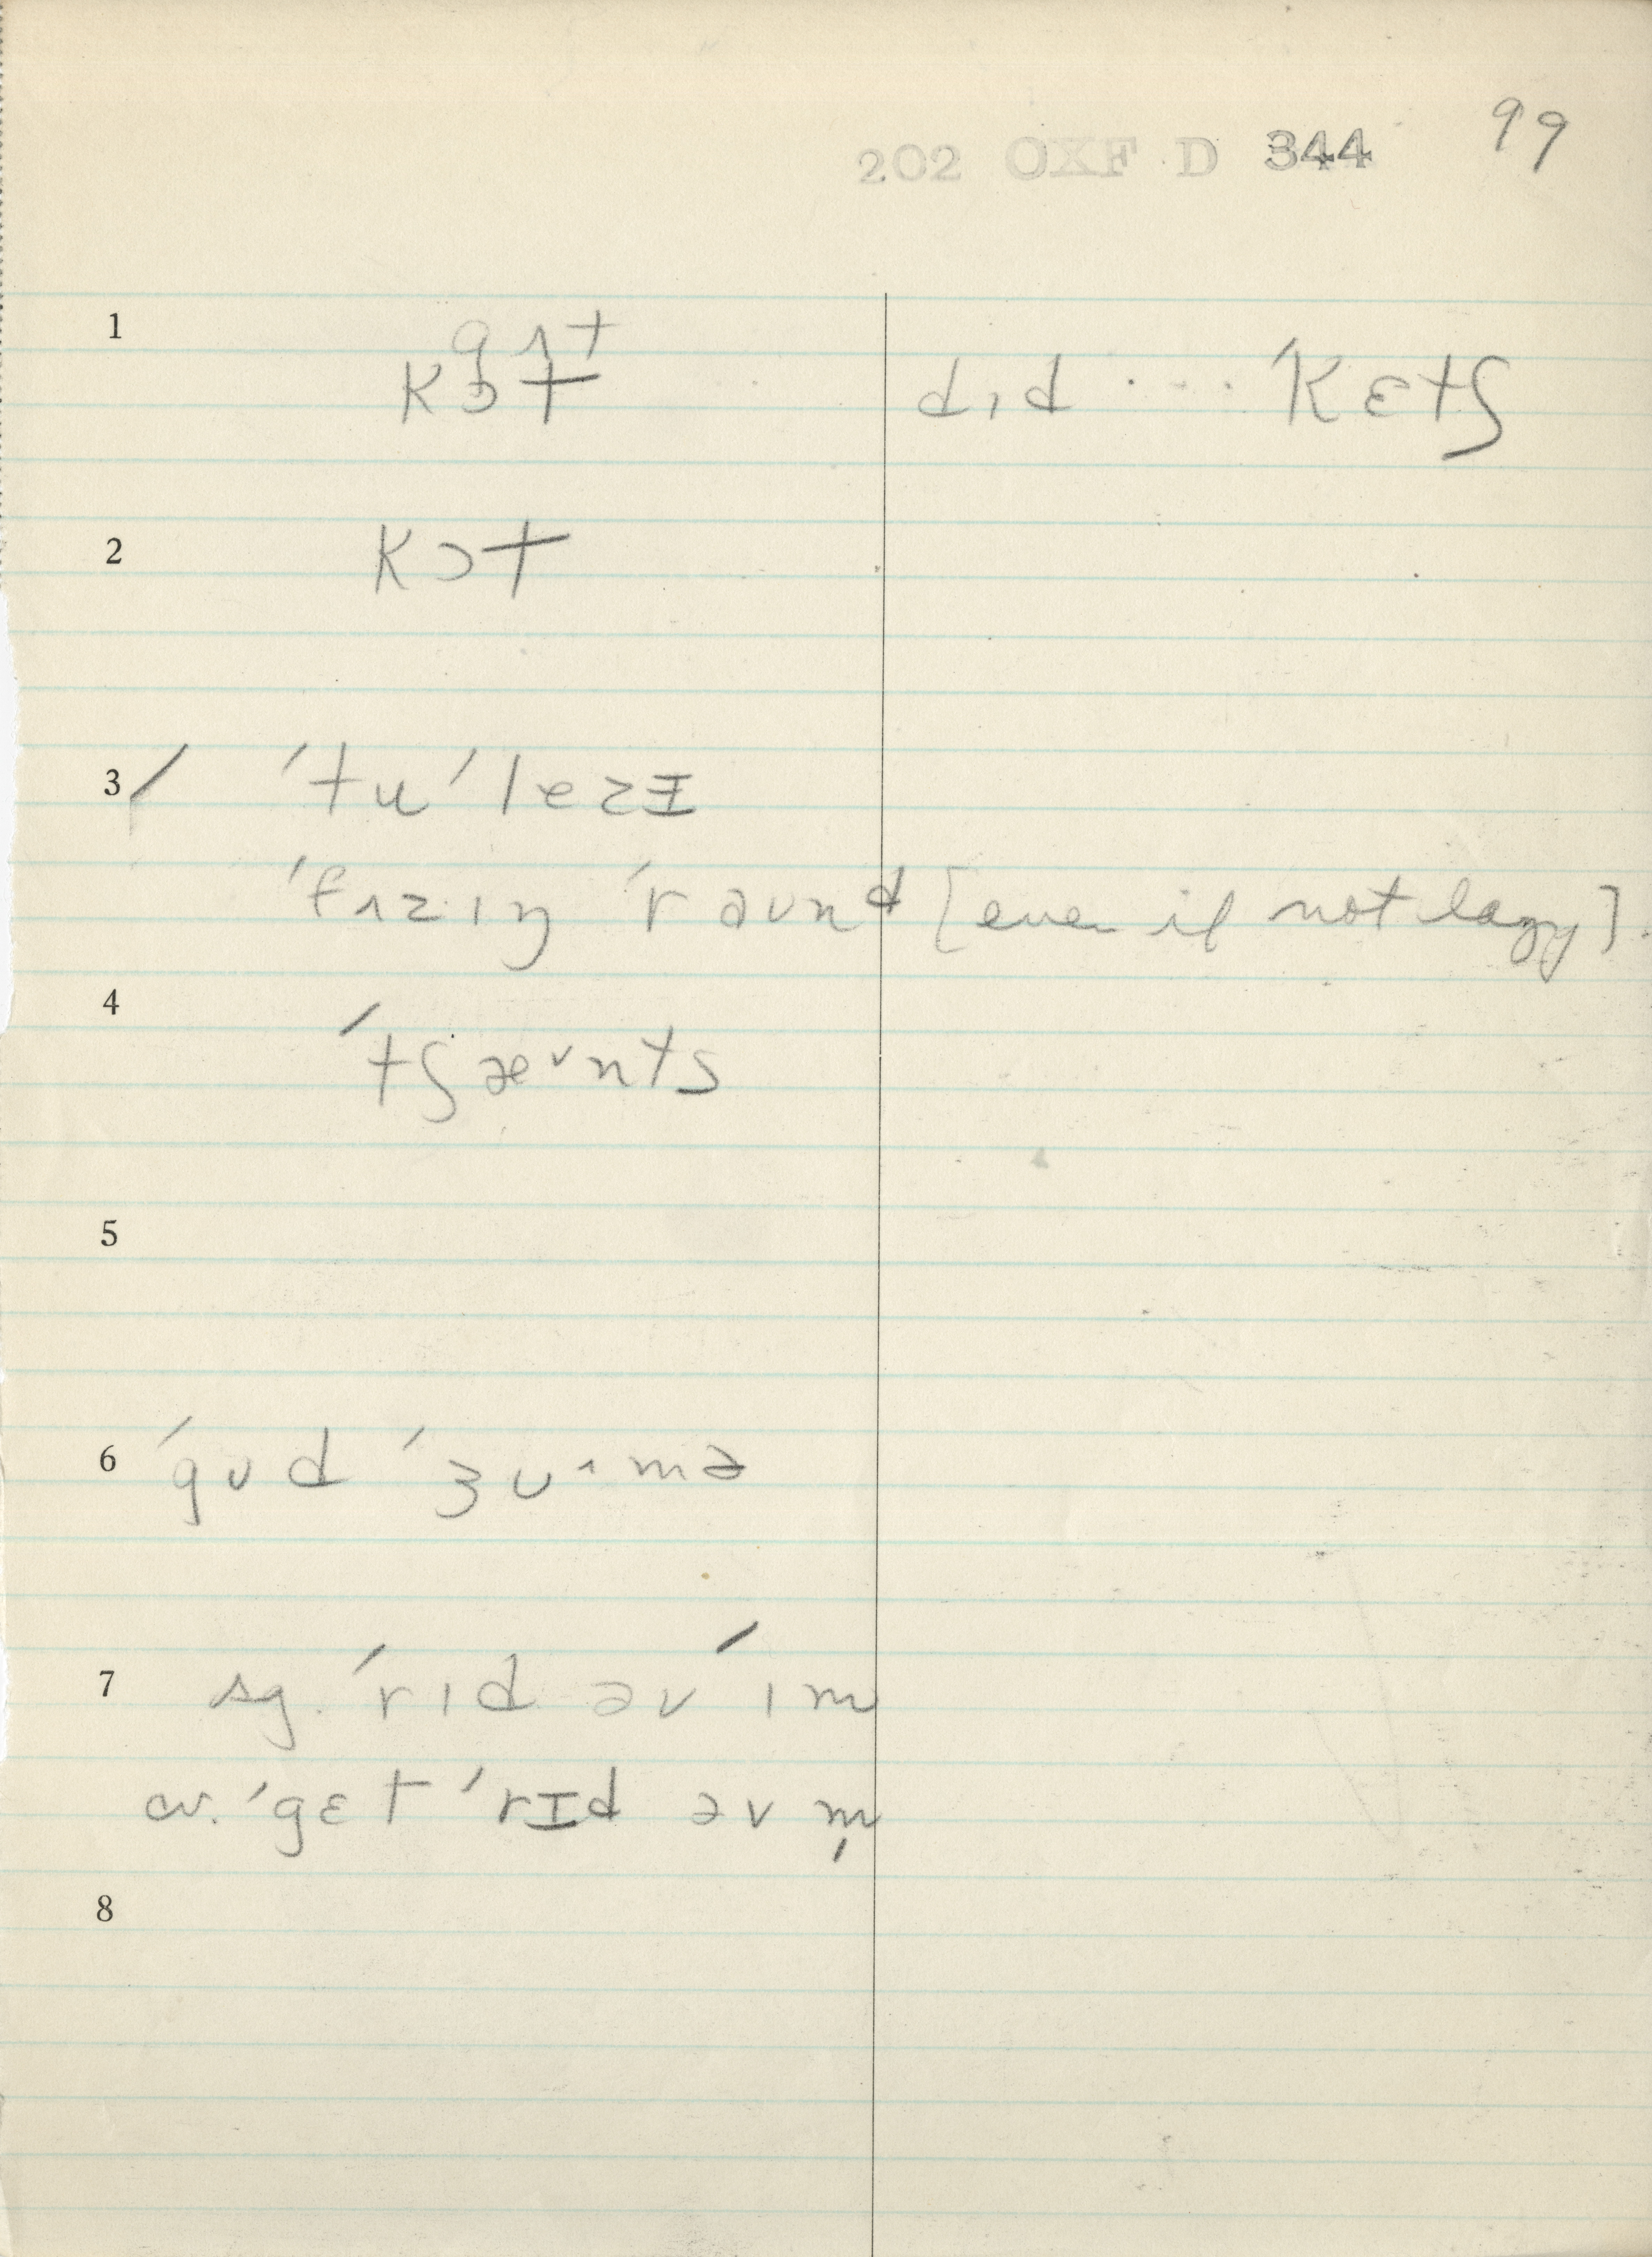 202 OXF D 344 99
1 kɔt dɪd ··· ˈkɛtʃ
2 kɔt
3 / ˈtu ˈlezɪ
ˈfɪzɪŋ ˈraund [even if not lazy].
4 ˈtʃæʊnts
5
6 ˈgʊd ˈʒʊˑmə
7 sg. ˈrɪd əv ˈɪm
cv. ˈgɛt ˈrɪd əv m̩
8